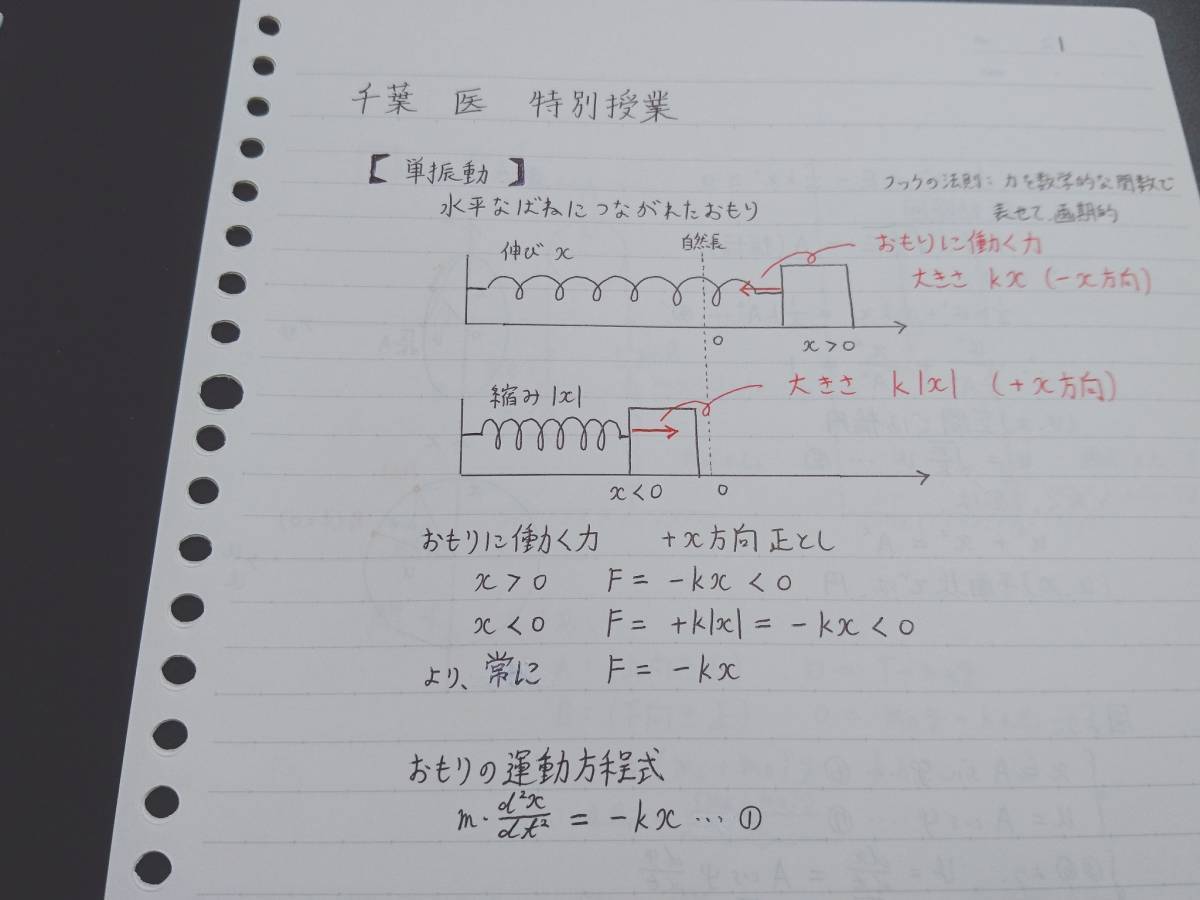 1
千葉 医 特別授業
【単振動】
水平なばねにつながれたおもり
フックの法則：力を数学的な関数で
表せて画期的
伸び x
自然長
おもりに働く力
大きさ kx (－x方向)
0
x>0
縮み |x|
大きさ k|x| (+x方向)
x<0
0
おもりに働く力 +x方向正とし
x>0 F = -kx < 0
x<0 F = +k|x| = -kx < 0
より、常に F = -kx
おもりの運動方程式
m・d²x/dt² = -kx … ①